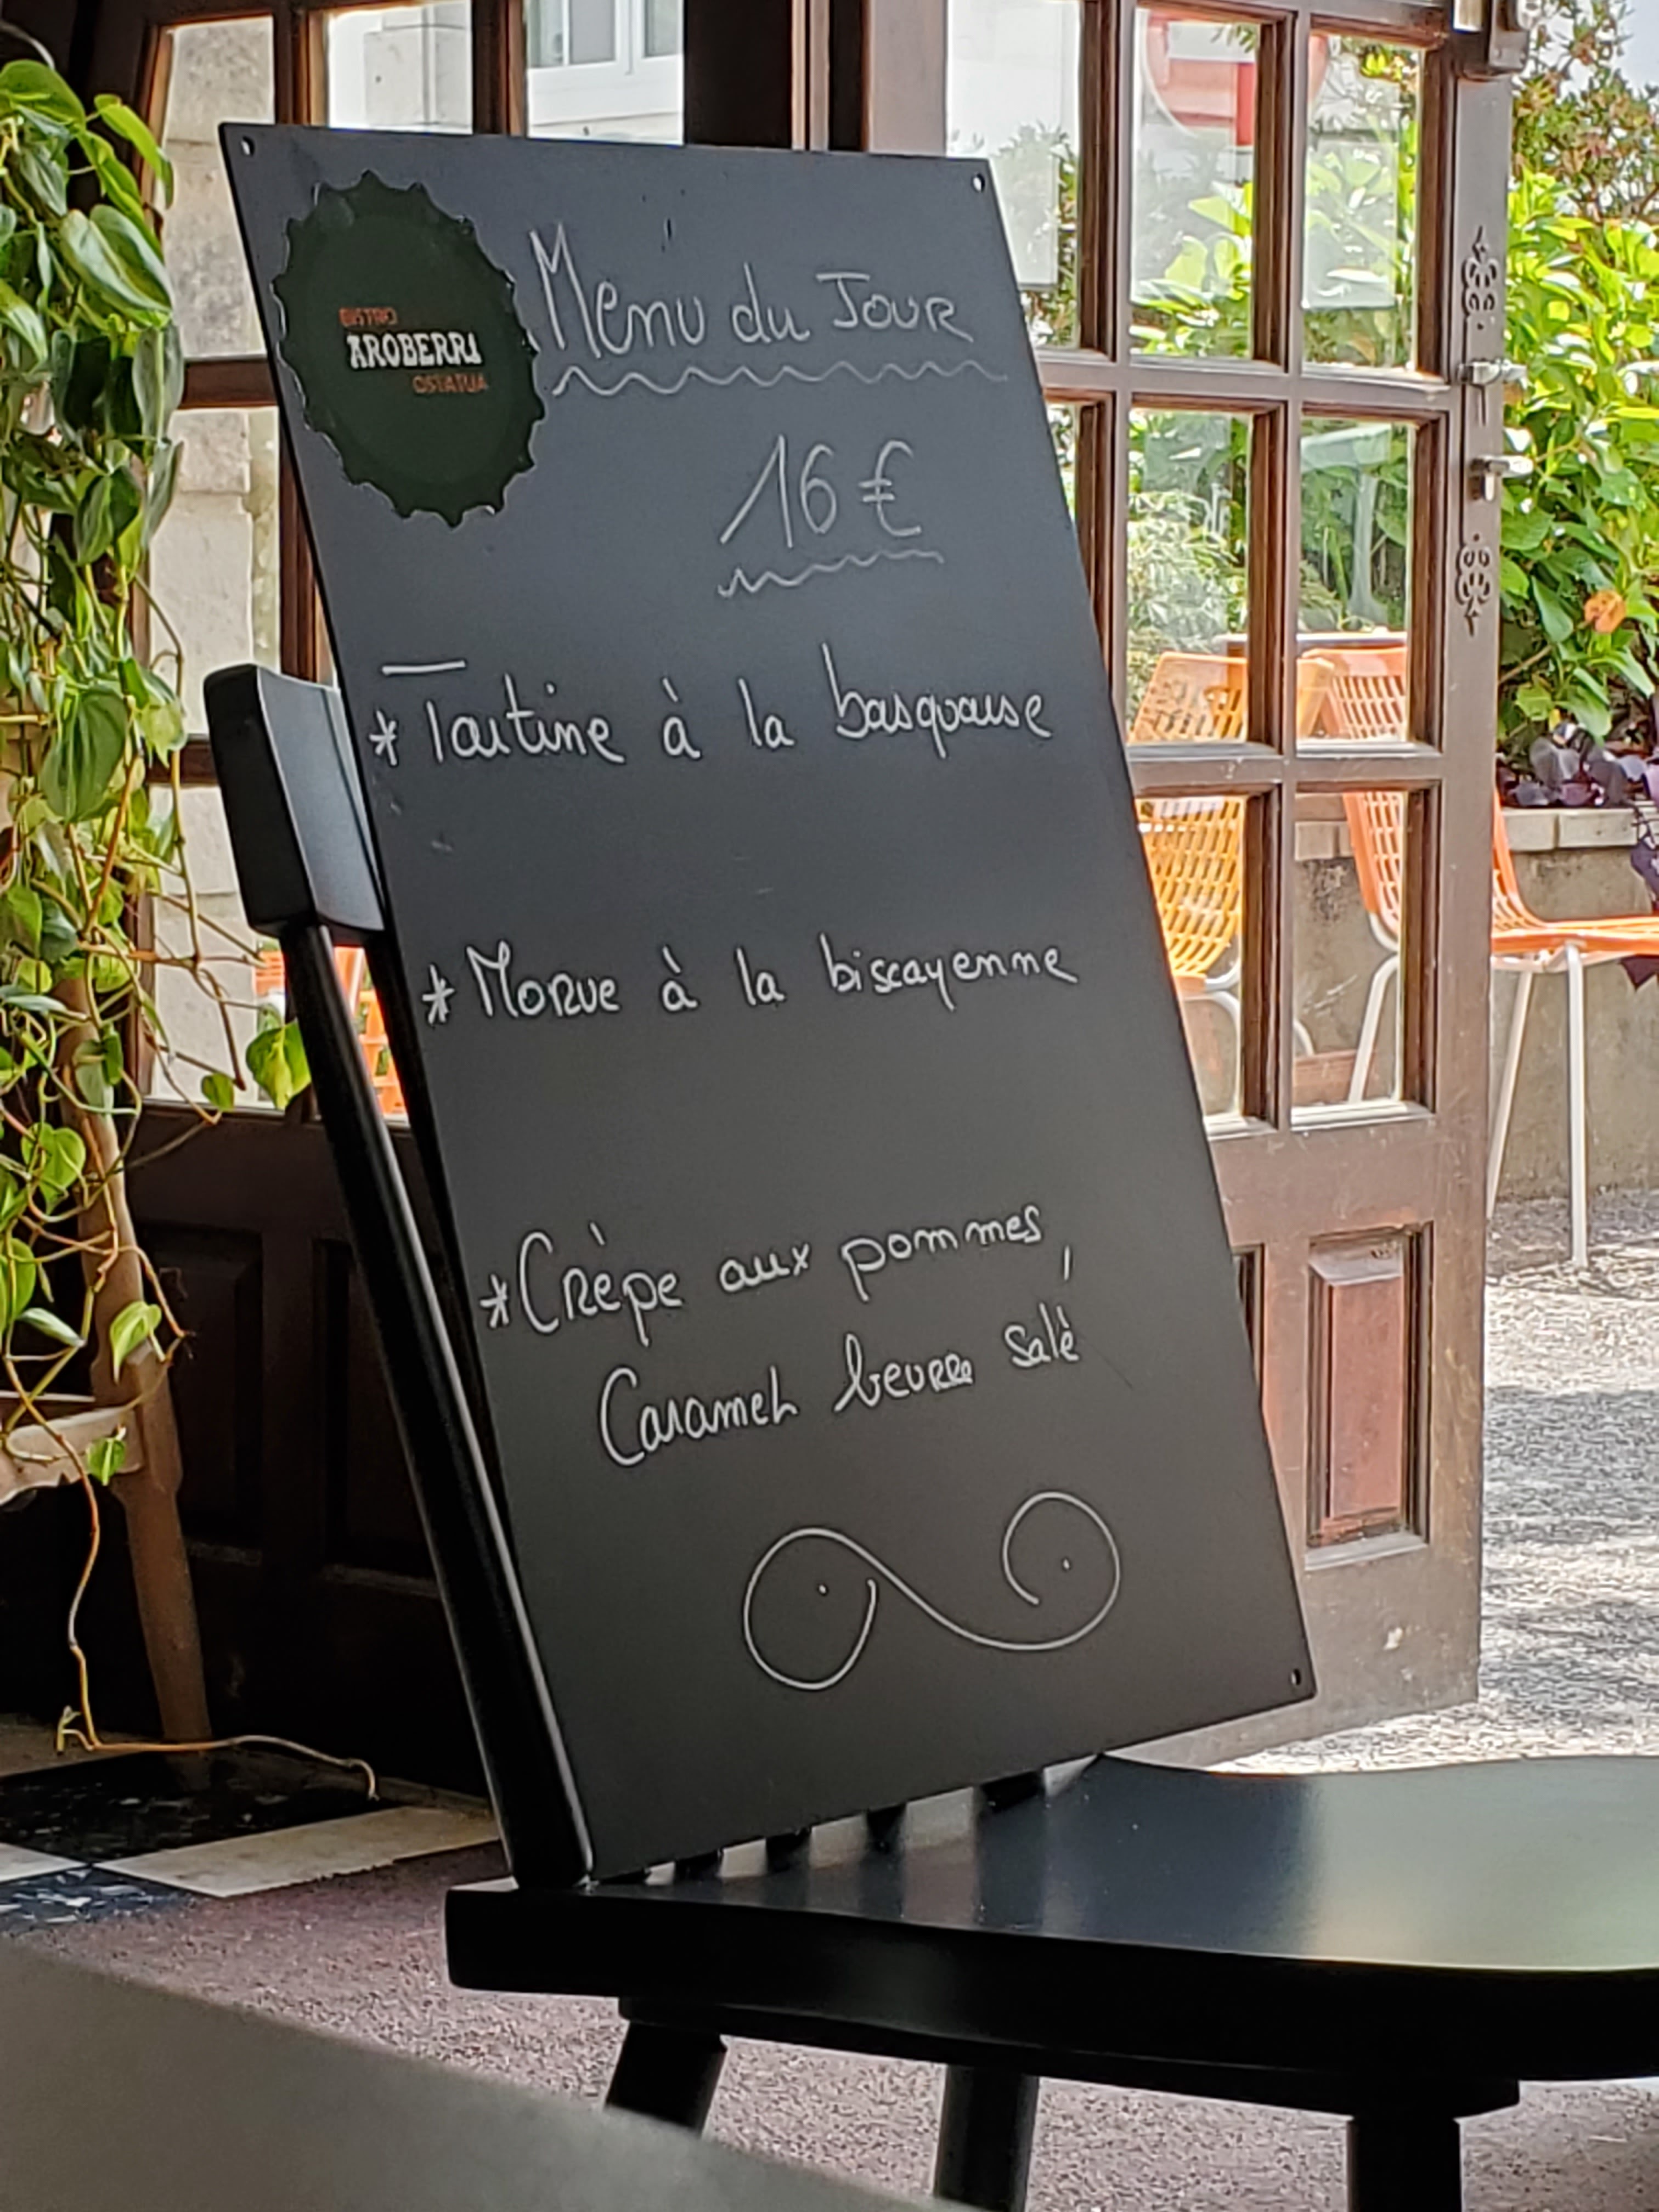 BISTRO
AROBERRI
OSTATUA
Menu du Jour
16 €
* Tartine à la basquaise
* Morue à la biscayenne
* Crèpe aux pommes,
Caramel beurre salè